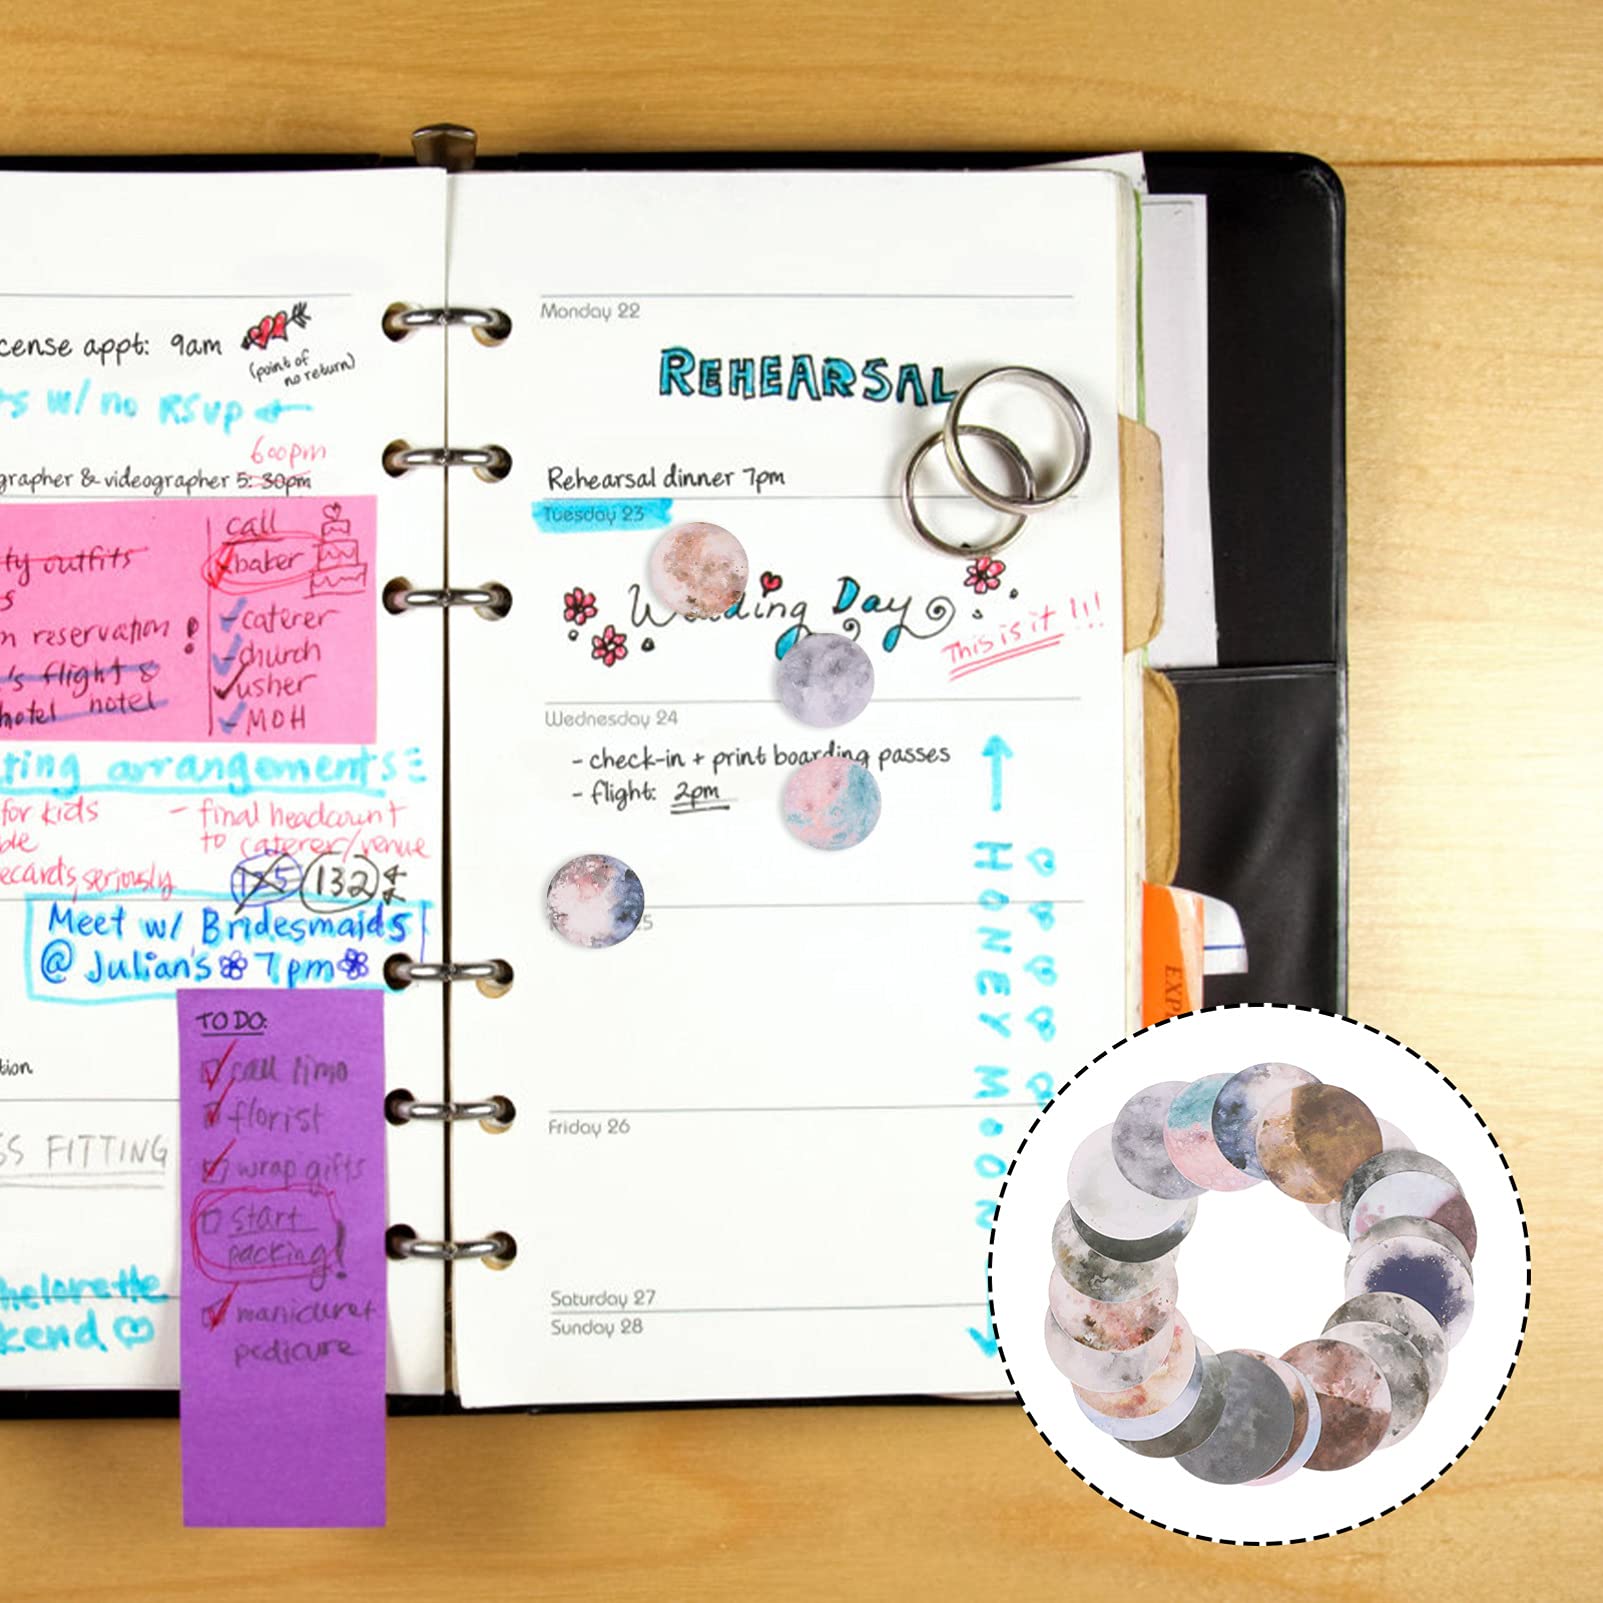 cense appt: 9am
(point of
no return)
ts w/ no RSVP
600pm
grapher & videographer 5:30pm
ty outfits
s
n reservation !
's flight &
hotel hotel
call
baker
caterer
church
usher
MOH
ting arrangements
for kids
ble
ecards, seriously
- final headcount
to caterer/venue
125 132
Meet w/ Bridesmaids
@ Julian's 7pm
TO DO:
call limo
florist
wrap gifts
start
packing!
manicure +
pedicure
tion
SS FITTING
helorette
kend
Monday 22
REHEARSAL
Rehearsal dinner 7pm
Tuesday 23
Wedding Day
This is it !!!
Wednesday 24
- check-in + print boarding passes
- flight: 2pm
5
HONEYMOON
Friday 26
Saturday 27
Sunday 28
EXP